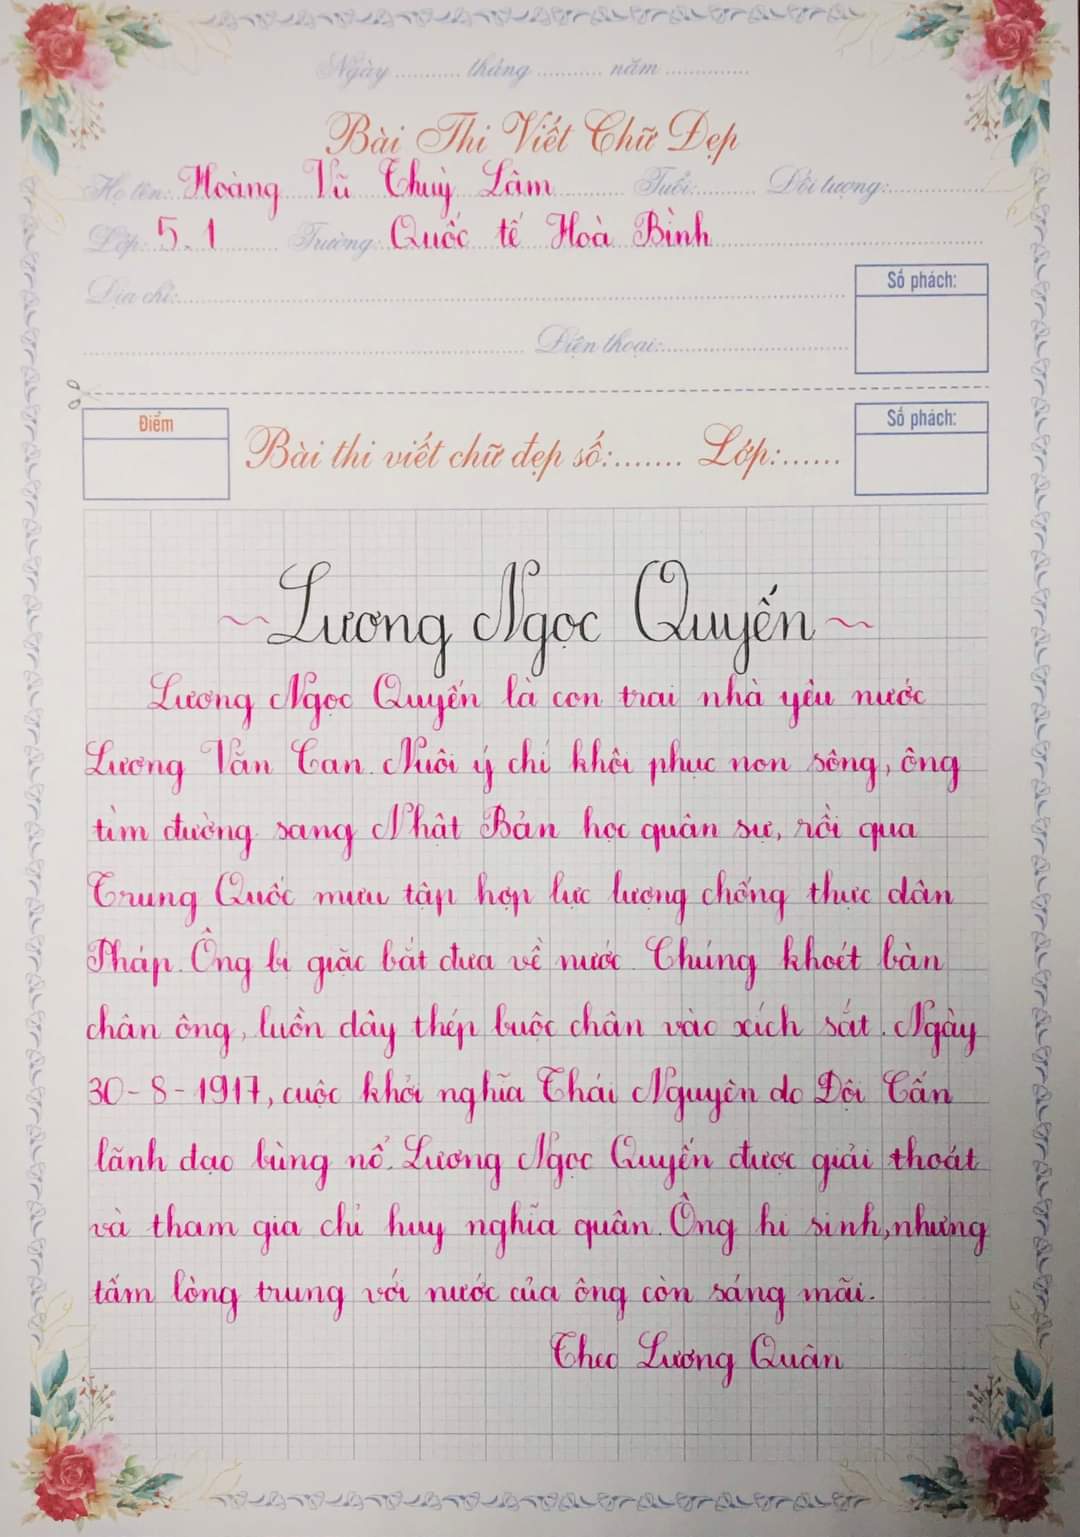 Ngày ........... tháng ........... năm ..............
Bài Thi Viết Chữ Đẹp
Họ tên: Hoàng Vũ Thuỳ Lâm Tuổi: Đối tượng:
Lớp: 5.1 Trường: Quốc tế Hoà Bình
Địa chỉ:
Số phách:
Điện thoại:
Điểm
Bài thi viết chữ đẹp số:....... Lớp:......
Số phách:
~ Lương Ngọc Quyến ~
Lương Ngọc Quyến là con trai nhà yêu nước
Lương Văn Can. Nuôi ý chí khôi phục non sông, ông
tìm đường sang Nhật Bản học quân sự, rồi qua
Trung Quốc mưu tập hợp lực lượng chống thực dân
Pháp. Ông bị giặc bắt đưa về nước. Chúng khoét bàn
chân ông, luồn dây thép buộc chân vào xích sắt. Ngày
30-8-1917, cuộc khởi nghĩa Thái Nguyên do Đội Cấn
lãnh đạo bùng nổ. Lương Ngọc Quyến được giải thoát
và tham gia chỉ huy nghĩa quân. Ông hi sinh, nhưng
tấm lòng trung với nước của ông còn sáng mãi.
Theo Lương Quân